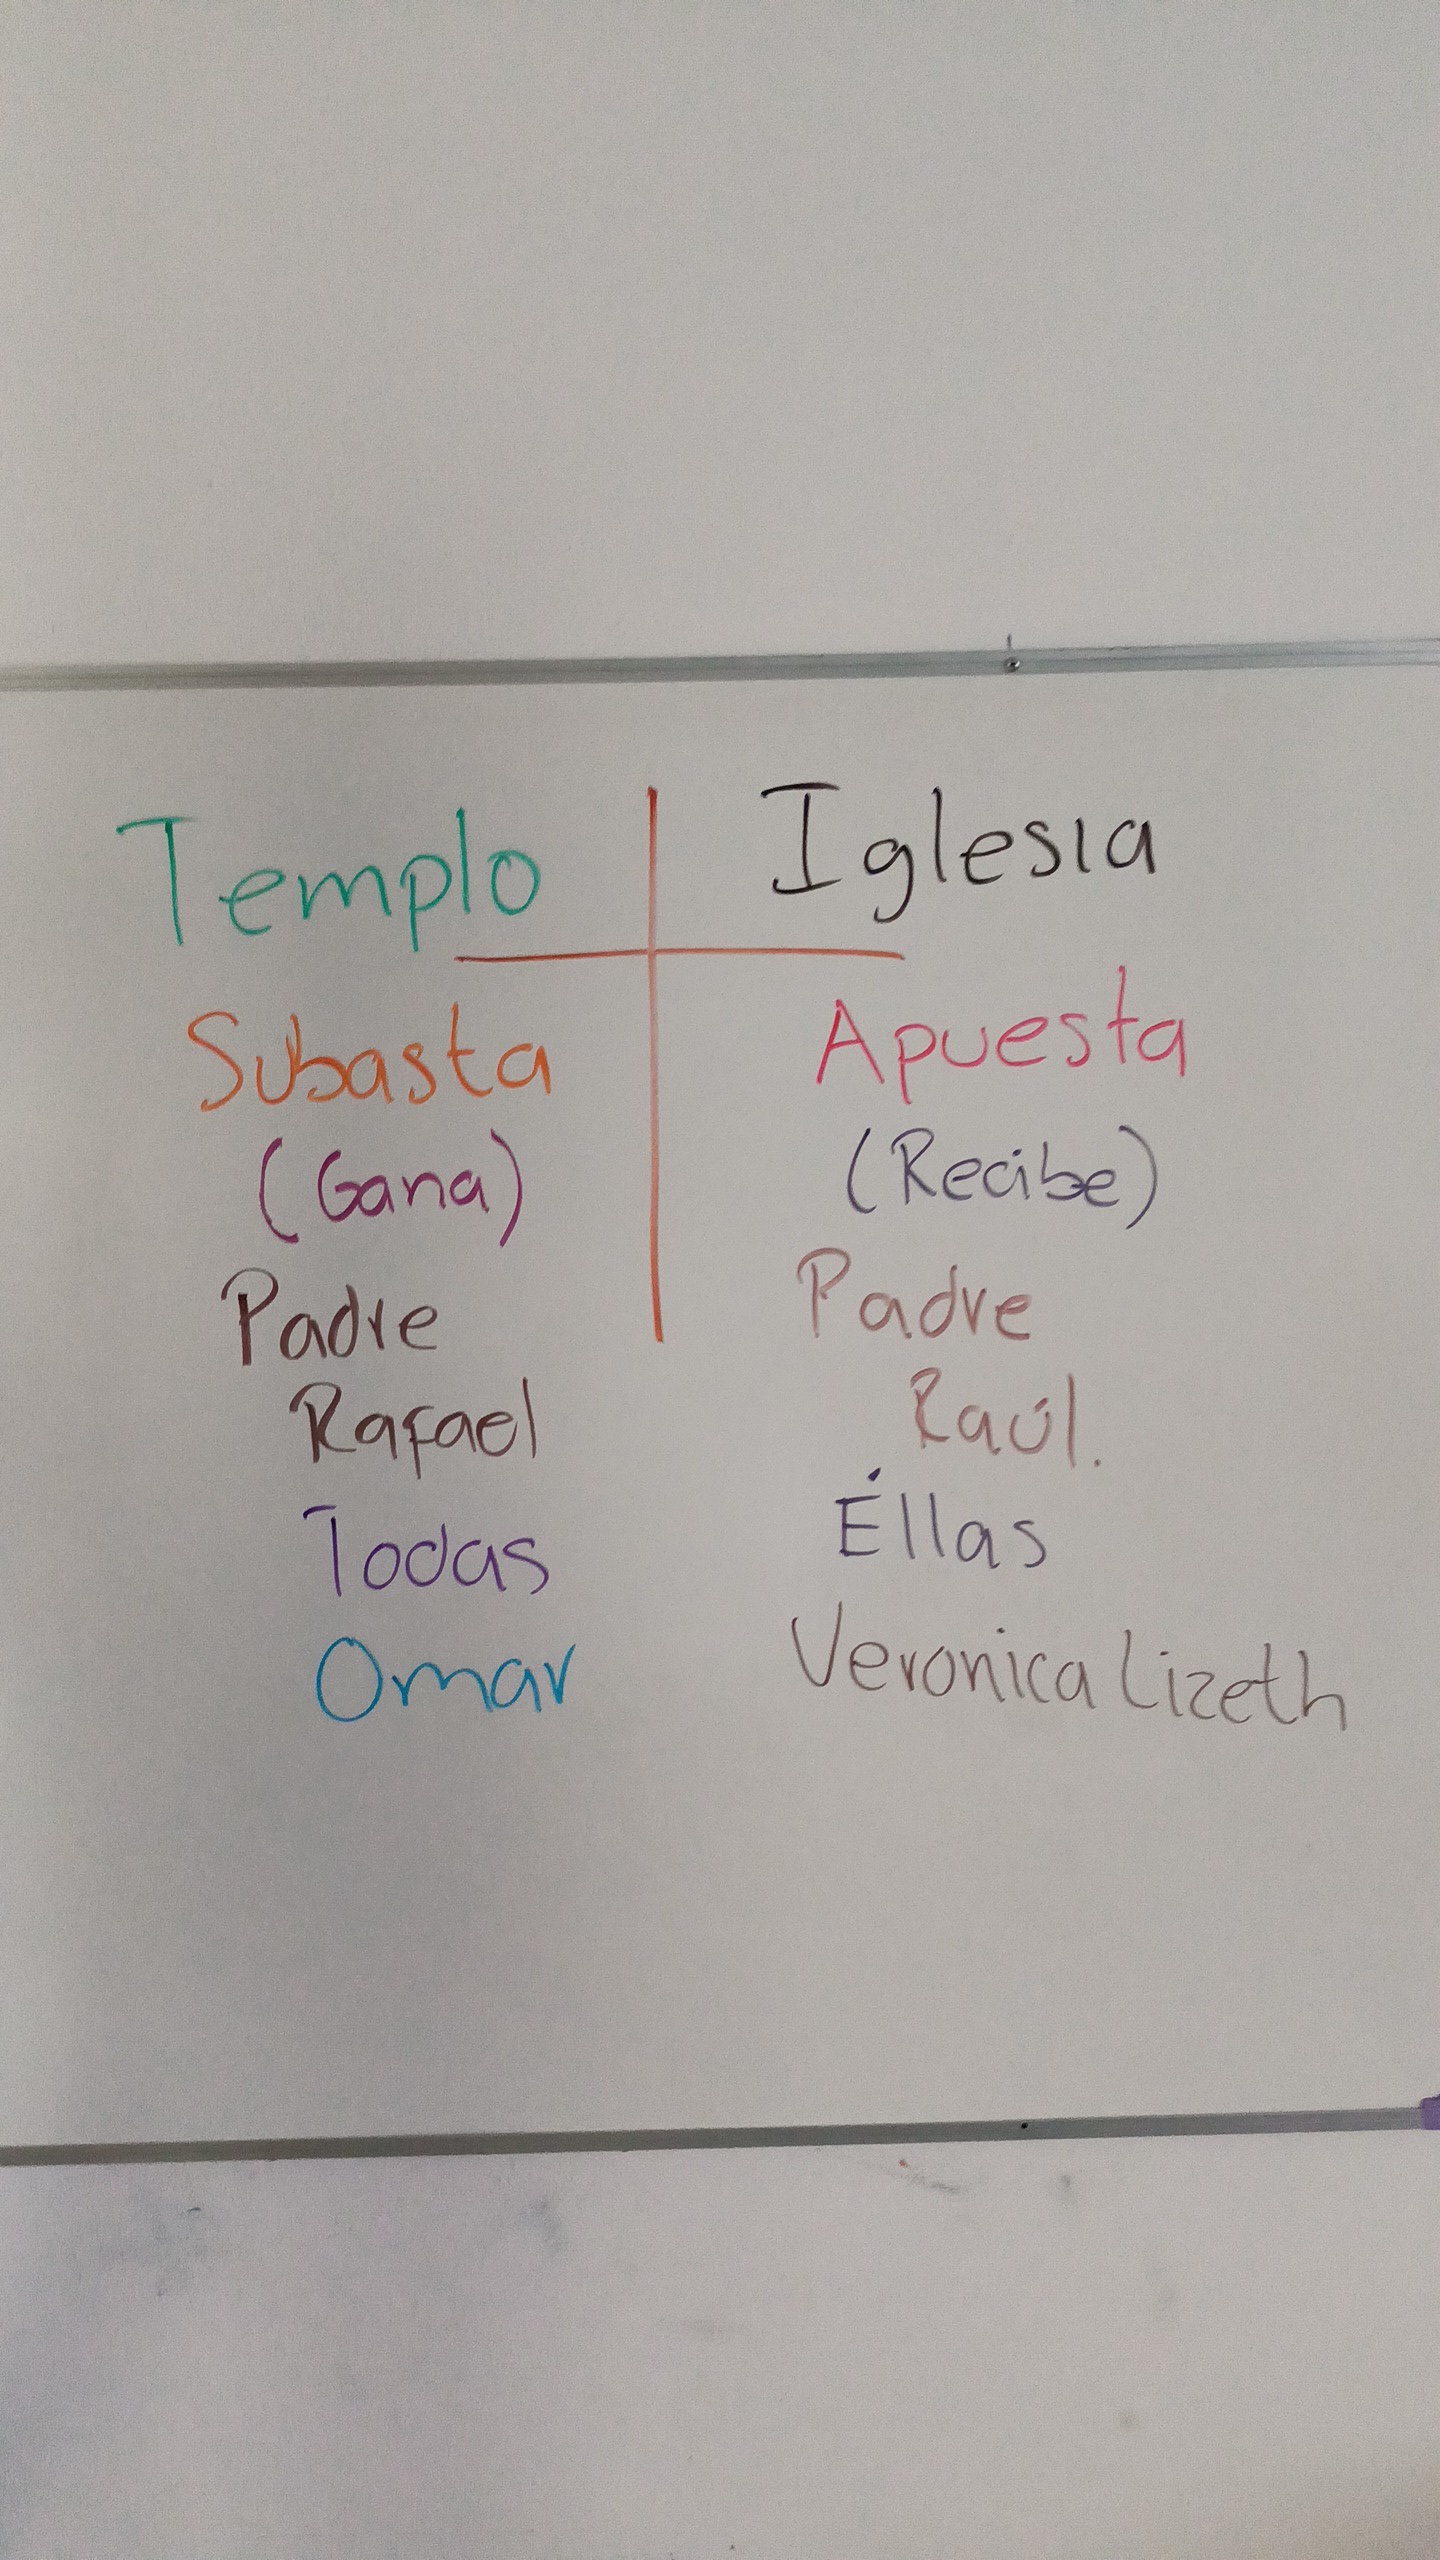 Templo Iglesia
Subasta Apuesta
(Gana) (Recibe)
Padre Padre
Rafael Raúl.
Todas Éllas
Omar Veronica Lizeth